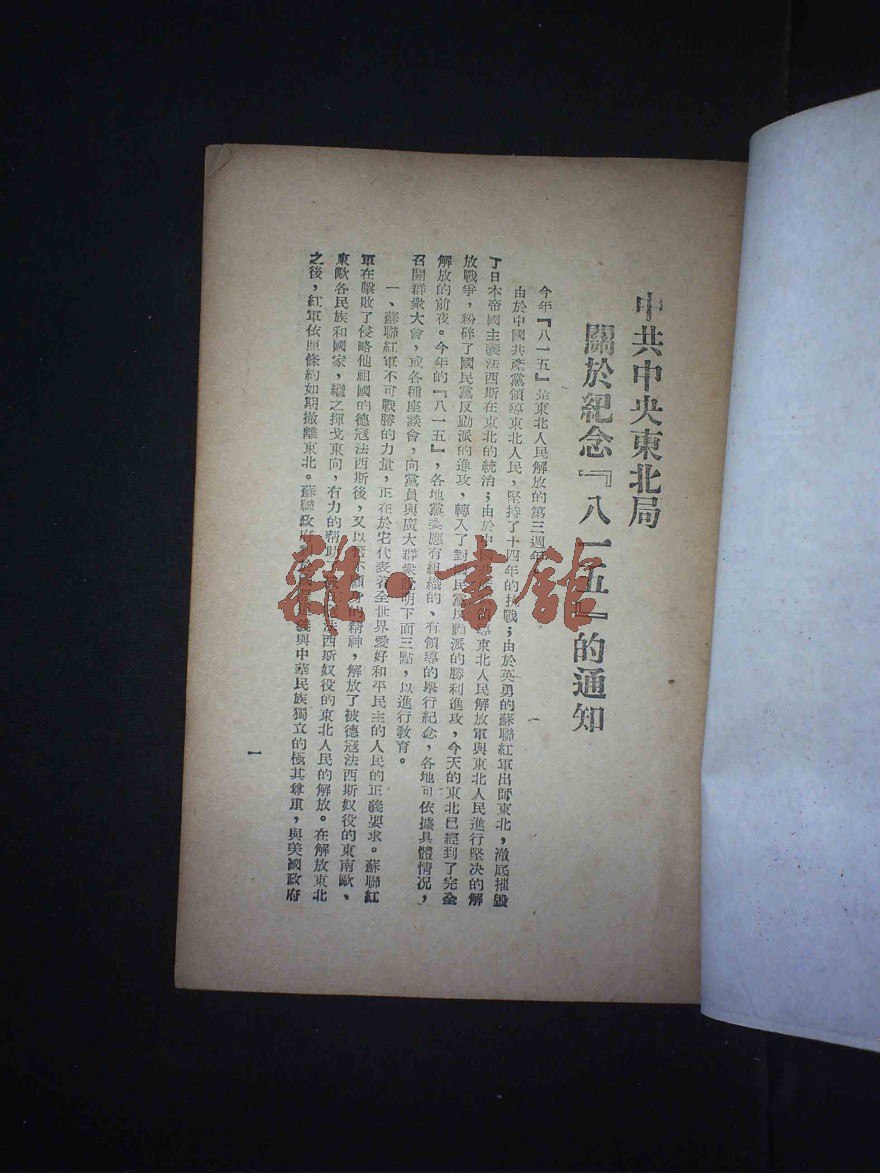 中共中央東北局
關於紀念『八一五』的通知
今年『八一五』是東北人民解放的第三週年。
由於中國共產黨領導東北人民，堅持了十四年的抗戰；由於英勇的蘇聯紅軍出師東北，澈底摧毀
了日本帝國主義法西斯在東北的統治；由於中 領導東北人民解放軍與東北人民進行堅决的解
放戰爭，粉碎了國民黨反動派的進攻，轉入了對 民黨反動派的勝利進攻，今天的東北已經到了完全
解放的前夜。今年的『八一五』，各地黨委應有組織的、有領導的舉行紀念，各地可依據具體情况，
召開群衆大會，或各種座談會，向黨員與廣大群衆說明下面三點，以進行敎育。
一、蘇聯紅軍不可戰勝的力量，正在於它代表着全世界愛好和平民主的人民的正義要求。蘇聯紅
軍在擊敗了侵略他祖國的德寇法西斯後，又以 的精神，解放了被德寇法西斯奴役的東南歐、
東歐各民族和國家，繼之揮戈東向，有力的幫助 法西斯奴役的東北人民的解放。在解放東北
之後，紅軍依照條約如期撤離東北。蘇聯政府 與中華民族獨立的極其尊重，與美國政府
一
雜·書館